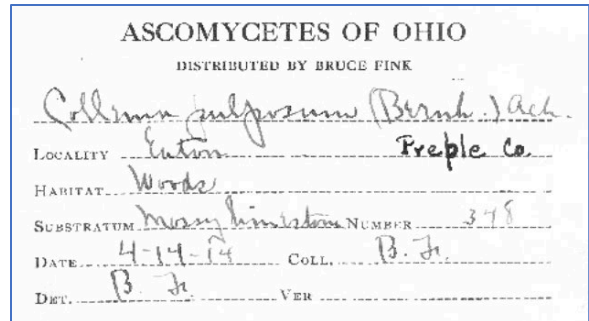 ASCOMYCETES OF OHIO
DISTRIBUTED BY BRUCE FINK
Collema pulposum (Bernh.) Ach.
LOCALITY Eaton Preple Co.
HABITAT Woods
SUBSTRATUM Mossy limestone NUMBER 348
DATE 4-14-14 COLL. B. F.
DET. B. F. VER